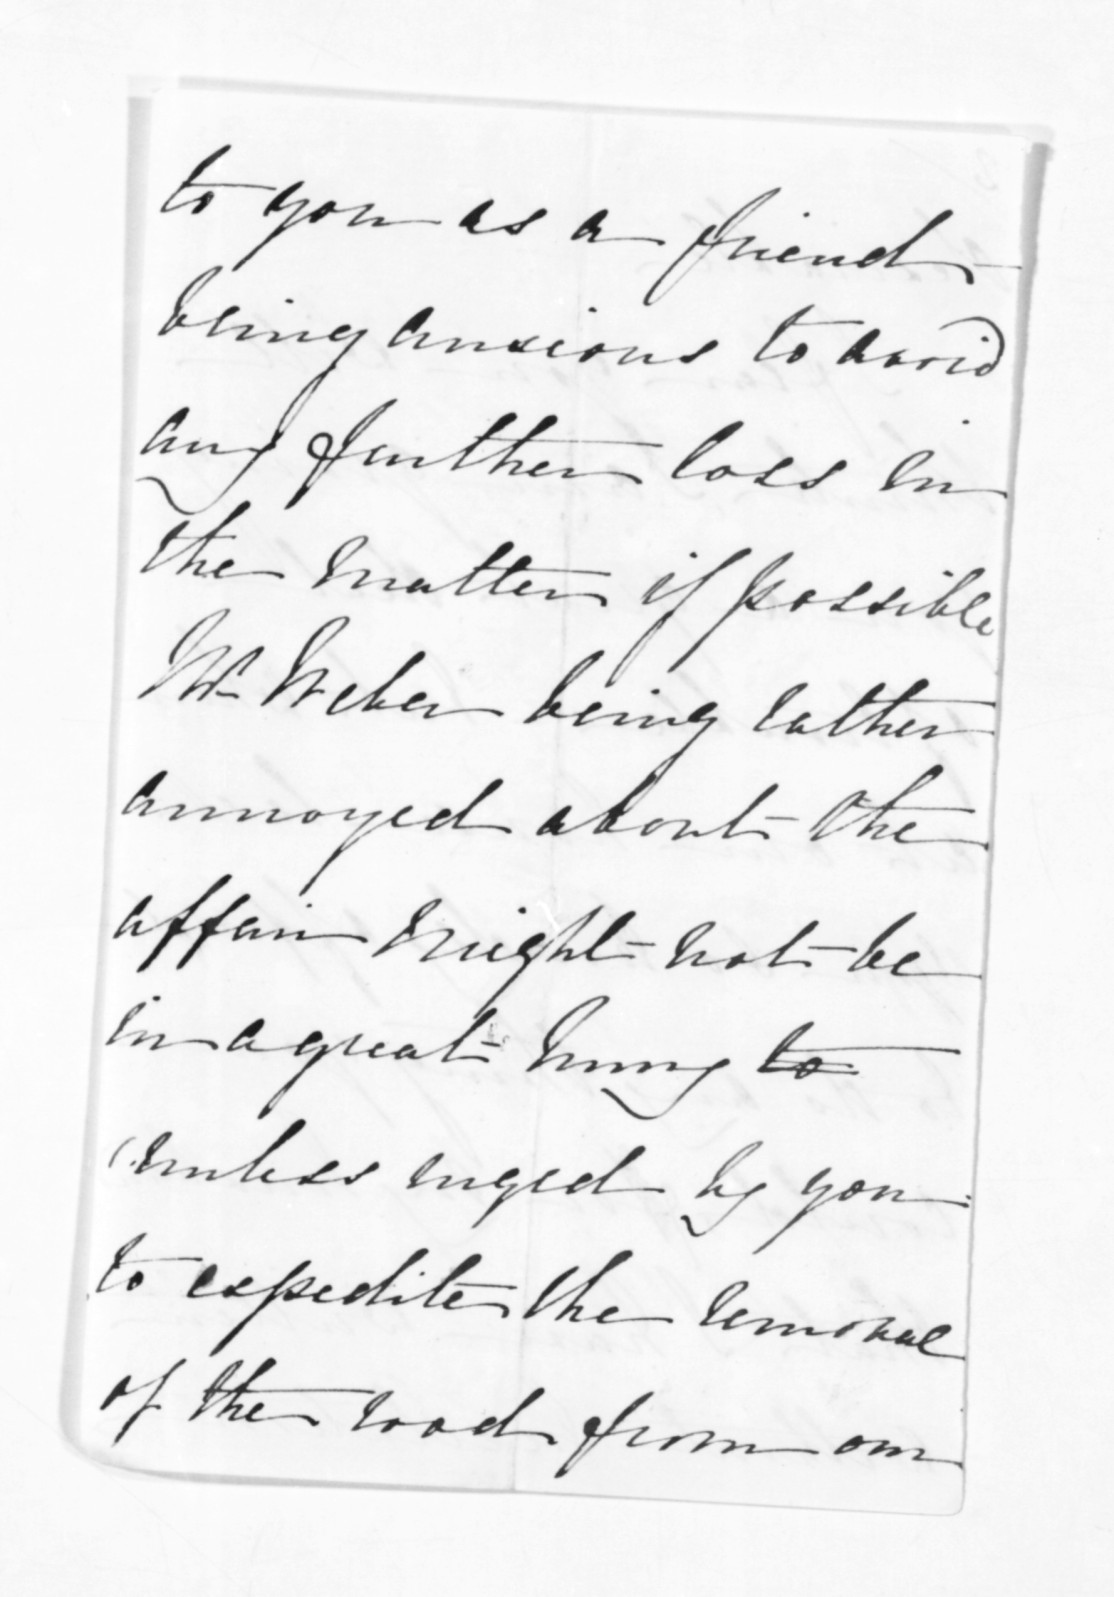 to you as a friend
being anxious to avoid
any further loss in
the matter if possible
Mr Weber being rather
annoyed about the
affair might not be
in a great hurry to
unless urged by you
to expedite the removal
of the road from our